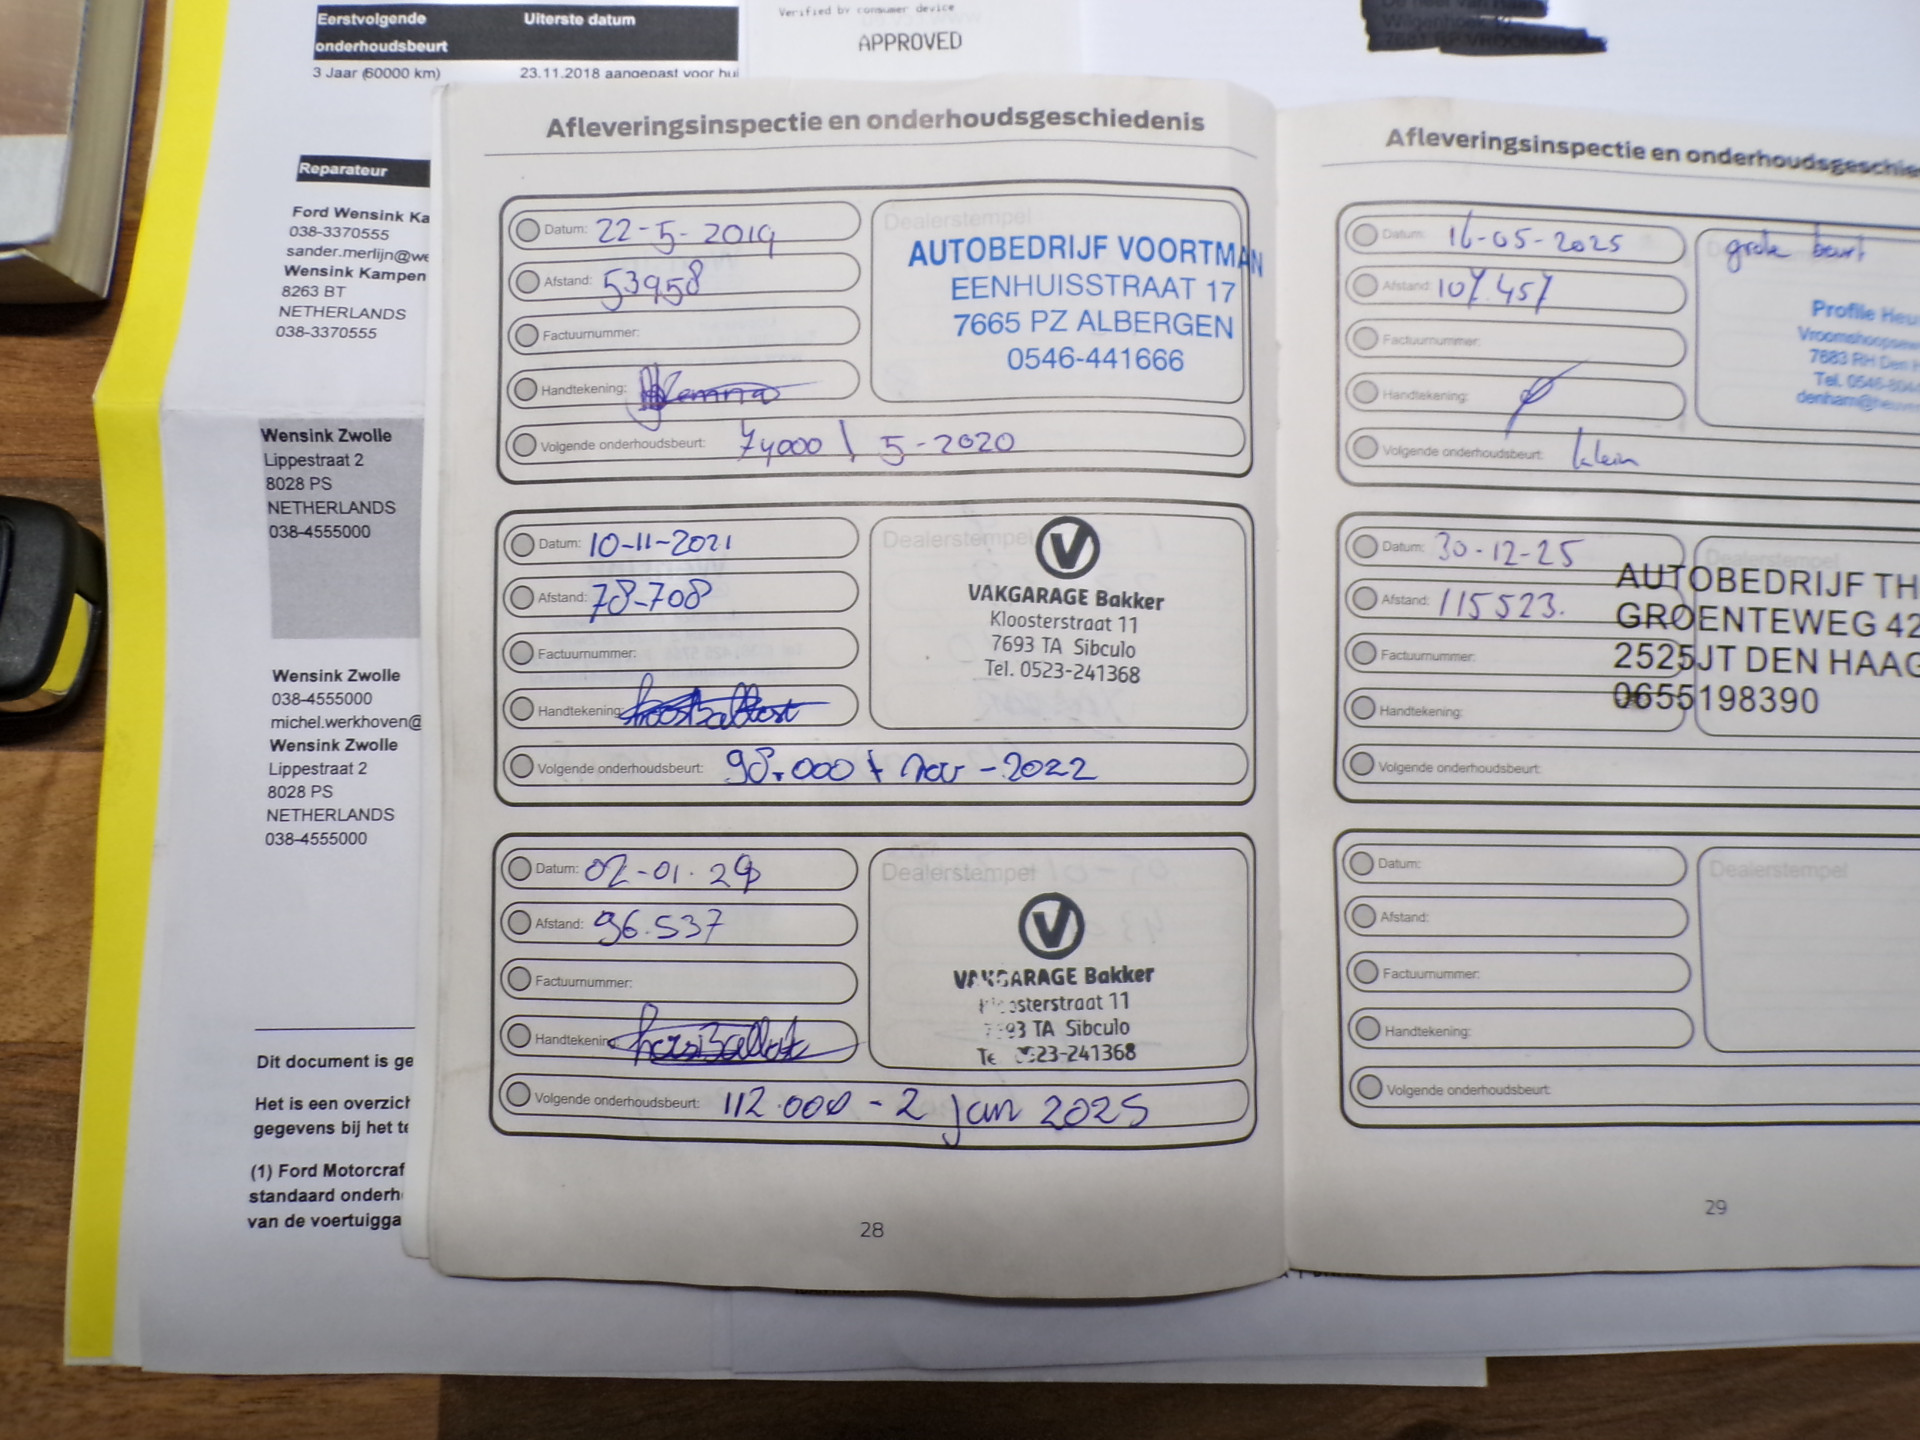 Eerstvolgende onderhoudsbeurt
Uiterste datum
3 Jaar (60000 km)
23.11.2018 aangepast voor hui
Verified by consumer device
APPROVED
Reparateur
Ford Wensink Ka
038-3370555
sander.merlijn@we
Wensink Kampen
8263 BT
NETHERLANDS
038-3370555
Wensink Zwolle
Lippestraat 2
8028 PS
NETHERLANDS
038-4555000
Wensink Zwolle
038-4555000
michel.werkhoven@
Wensink Zwolle
Lippestraat 2
8028 PS
NETHERLANDS
038-4555000
Dit document is ge
Het is een overzich
gegevens bij het te
(1) Ford Motorcraf
standaard onderh
van de voertuigga
Afleveringsinspectie en onderhoudsgeschiedenis
Datum: 22-5-2019
Afstand: 53958
Factuurnummer:
Handtekening:
Dealerstempel
AUTOBEDRIJF VOORTMAN
EENHUISSTRAAT 17
7665 PZ ALBERGEN
0546-441666
Volgende onderhoudsbeurt: 74000 \ 5-2020
Datum: 10-11-2021
Afstand: 78-708
Factuurnummer:
Handtekening:
Dealerstempel
V
VAKGARAGE Bakker
Kloosterstraat 11
7693 TA Sibculo
Tel. 0523-241368
Volgende onderhoudsbeurt: 98.000 + nov - 2022
Datum: 02-01-24
Afstand: 96.537
Factuurnummer:
Handtekening:
Dealerstempel
V
VAKGARAGE Bakker
osterstraat 11
93 TA Sibculo
Te 0523-241368
Volgende onderhoudsbeurt: 112.000 - 2 jan 2025
28
Afleveringsinspectie en onderhoudsgeschie
Datum: 16-05-2025
Afstand: 107.457
Factuurnummer:
Handtekening:
grote beurt
Profile Heu
Vroomshoopsew
7683 RH Den H
Tel. 0546-804
denham@heuv
Volgende onderhoudsbeurt: klein
Datum: 30-12-25
Afstand: 115523.
Factuurnummer:
Handtekening:
Dealerstempel
AUTOBEDRIJF TH
GROENTEWEG 42
2525JT DEN HAAG
0655198390
Volgende onderhoudsbeurt:
Datum:
Afstand:
Factuurnummer:
Handtekening:
Dealerstempel
Volgende onderhoudsbeurt:
29